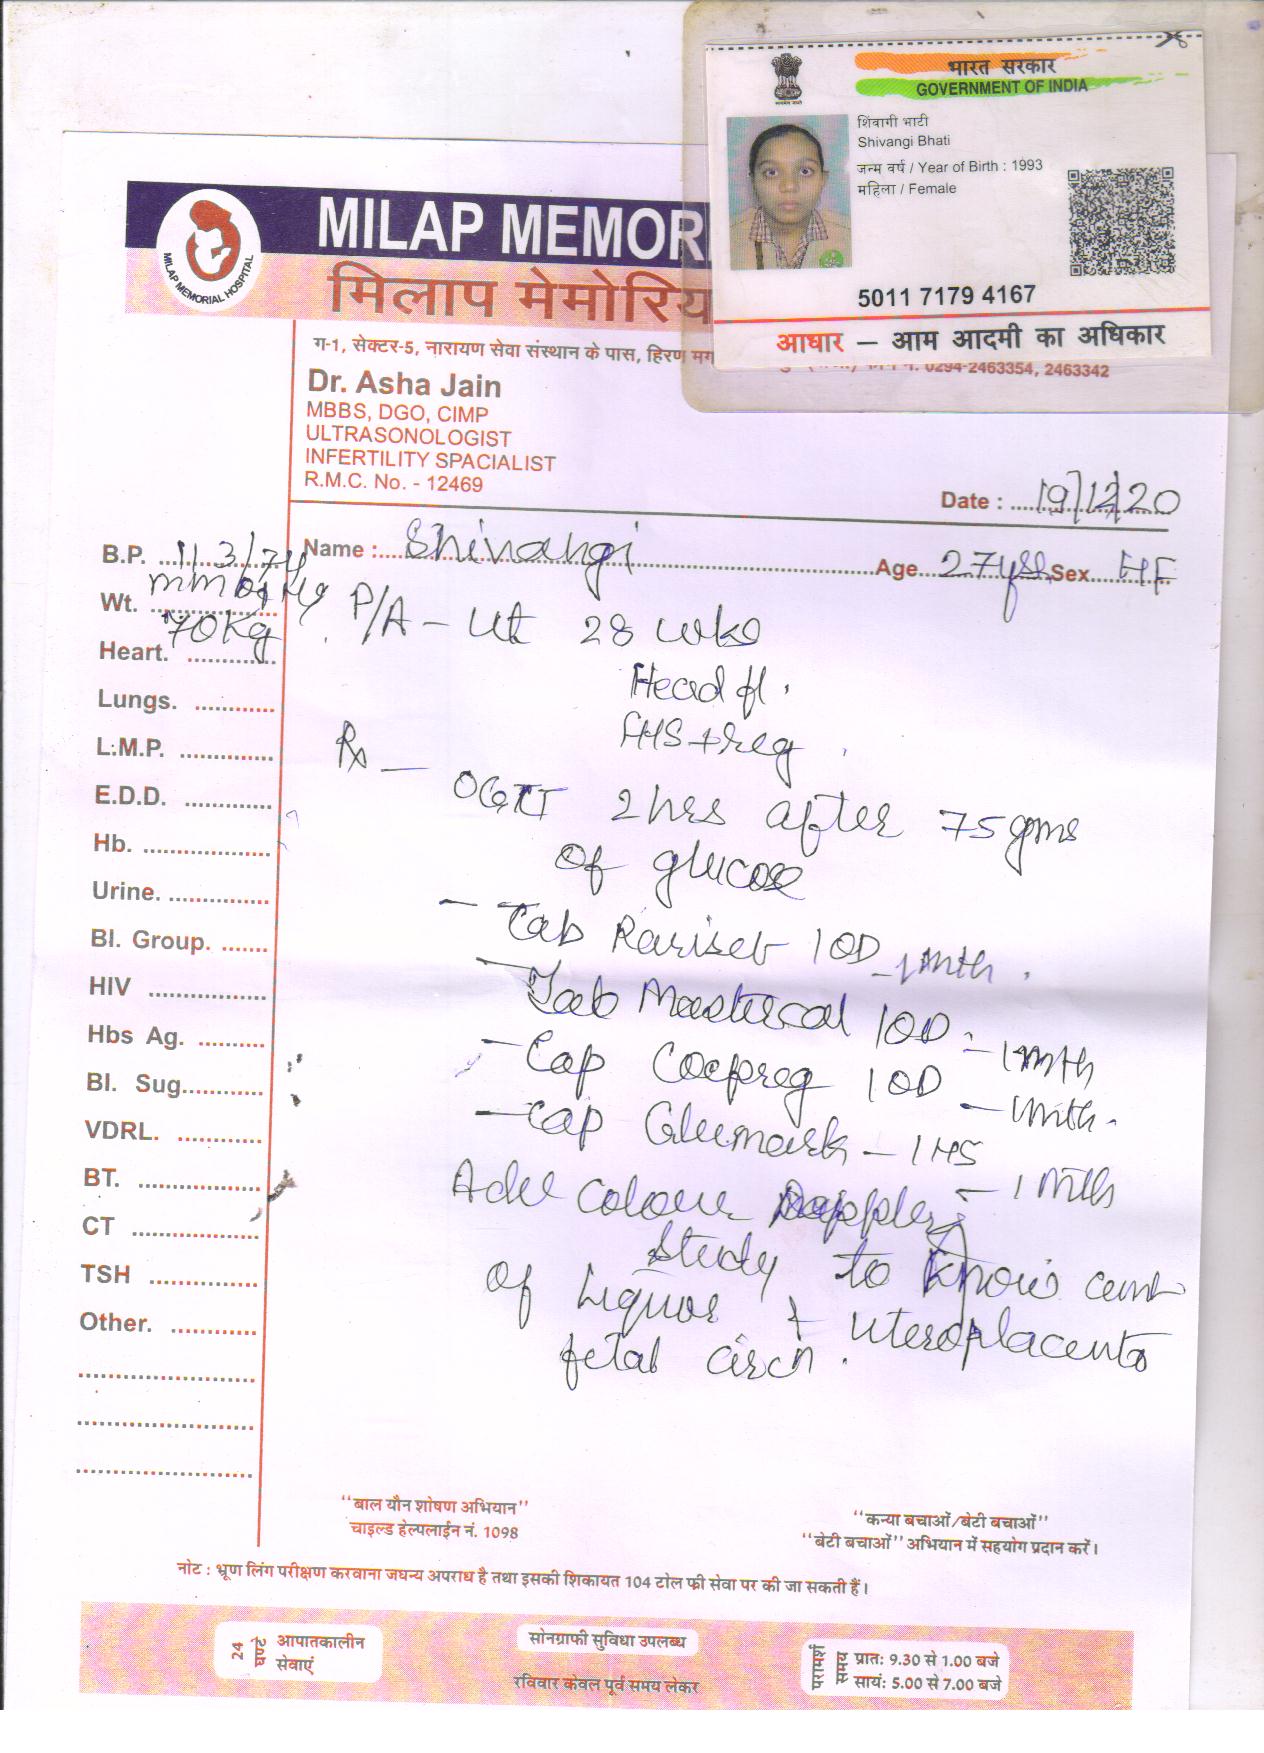 भारत सरकार
GOVERNMENT OF INDIA
शिंवागी भाटी
Shivangi Bhati
जन्म वर्ष / Year of Birth : 1993
महिला / Female
5011 7179 4167
आधार – आम आदमी का अधिकार
MILAP MEMORIAL HOSPITAL
MILAP MEMOR
मिलाप मेमोरिय
ग-1, सेक्टर-5, नारायण सेवा संस्थान के पास, हिरण मग
0294-2463354, 2463342
Dr. Asha Jain
MBBS, DGO, CIMP
ULTRASONOLOGIST
INFERTILITY SPACIALIST
R.M.C. No. - 12469
Date : 19/12/20
Name : Shivangi Age 27yrs Sex F
B.P. 113/74
mm of Hg
Wt. 70Kg
Heart.
Lungs.
L.M.P.
E.D.D.
Hb.
Urine.
Bl. Group.
HIV
Hbs Ag.
Bl. Sug.
VDRL.
BT.
CT
TSH
Other.
P/A – Ut 28 wks
Head fl.
FHS + reg
Rx –
OGTT 2 hrs after 75 gms
of glucose
– Tab Rariset 1 OD – 1 mth.
– Tab Mastercal 1 OD – 1 mth
– Cap Coepreg 1 OD – 1 mth.
– Cap Glumark – 1 HS – 1 mth
Adv Colour Doppler
Study to know
of liquor + uteroplacento
fetal circn.
"बाल यौन शोषण अभियान"
चाइल्ड हेल्पलाईन नं. 1098
"कन्या बचाओं/बेटी बचाओं"
"बेटी बचाओं" अभियान में सहयोग प्रदान करें।
नोट : भ्रूण लिंग परीक्षण करवाना जघन्य अपराध है तथा इसकी शिकायत 104 टोल फ्री सेवा पर की जा सकती हैं।
24 घण्टे
आपातकालीन
सेवाएं
सोनग्राफी सुविधा उपलब्ध
रविवार केवल पूर्व समय लेकर
परामर्श समय
प्रात: 9.30 से 1.00 बजे
सायं: 5.00 से 7.00 बजे